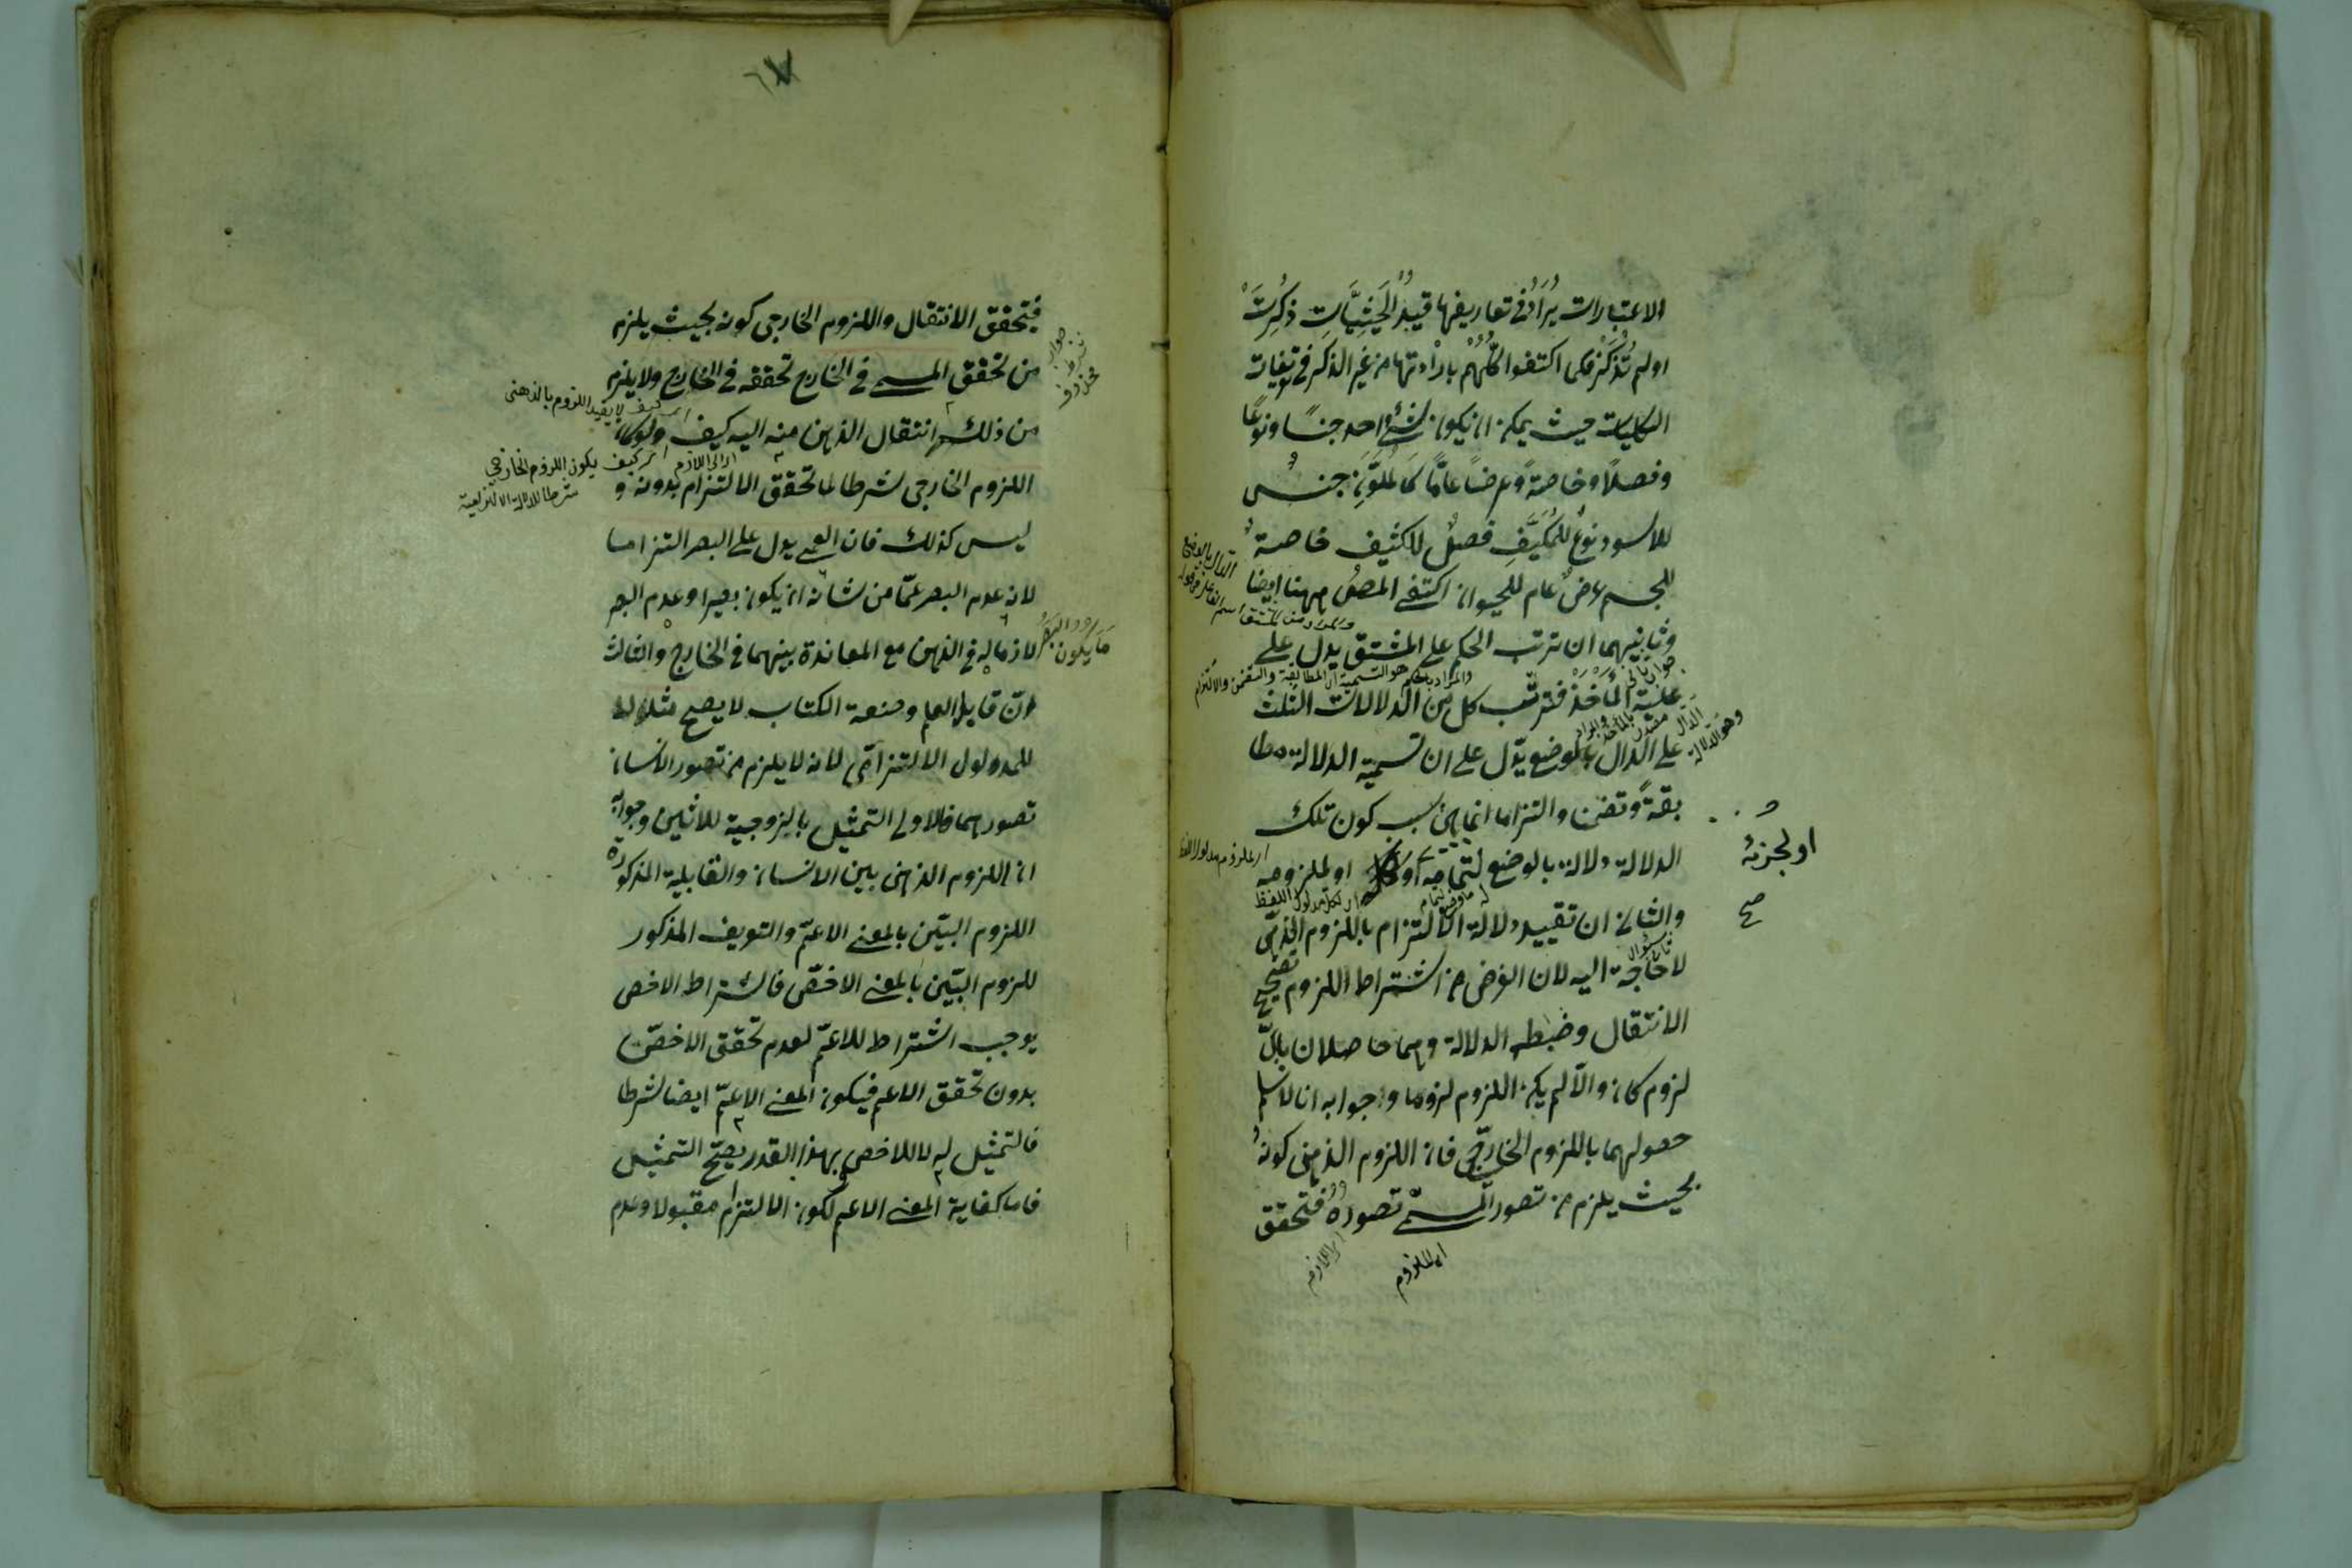 الاعتبارات يُرَادُ في تعاريفها قيدُ الحَيثِيَّاتِ ذُكِرَتْ
او لم تُذْكَرْ فكما اكتفوا كلُّهُمْ بارادتها من غير الذكر في تعريفات
الكليات حيث يمكن ان يكون لشئ واحد جنسًا ونوعًا
وفصلًا وخاصةً وعرضًا عامًّا كالمُلَوَّنِ جنسٌ
للاسود نوعٌ للمُكَيَّفِ فصلٌ للكثيف خاصةٌ
للجسم عرضٌ عام للحيوان اكتفى المصنف ههنا ايضا
وثانيهما ان ترتب الحكم على المشتق يدل على
علية المأخَذ فترتّب كل من الدلالات الثلث
على الدال بالوضع يدّل على ان تسمية الدلالة مطا
بقةً وتضمنا والتزاما انما هى بسبب كون تلك
الدلالة دلالة بالوضع لتمامه او لملزومه
او لجزئه
صح
والثانى ان تقييد دلالة الالتزام باللزوم الذهنى
لا حاجة اليه لان الغرض من اشتراط اللزوم تصحيح
الانتقال وضبط الدلالة وهما حاصلان باىّ
لزوم كان والّا لم يكن اللزوم لزوما وجوابه انا لا نسلم
حصولهما باللزوم الخارجى فان اللزوم الذهنى كونهُ
بحيث يلزم من تصور المسمّى تصورُهُ فتحقق
اى الملزوم
اى اللازم
فيتحقق الانتقال واللزوم الخارجى كونه بحيث يلزم
من تحقق المسمى فى الخارج تحققه فى الخارج ولا يلزم
جواب شرط محذوف
من ذلك انتقال الذهن منه اليه كيف ولو كان
اى كيف لا يقيد اللزوم بالذهنى
اللزوم الخارجى شرطا لما تحقق الالتزام بدونه و
اى كيف يكون اللزوم الخارجى
شرطا للدلالة الالتزامية
ليس كذلك فان العمى يدل على البصر التزاما
لانه عدم البصر عمّا من شانه ان يكون بصيرا وعدم البصر
لازما له فى الذهن مع المعاندة بينهما فى الخارج والثالث
انّ قابل العلم وصنعة الكتاب لا يصح مثلا له
للمدلول الالتزامّى لانه لا يلزم من تصور الانسان
تصورهما فالاولى التمثيل بالزوجية للاثنين وجوابه
ان اللزوم الذهنى بين الانسان والقابلية المذكورة
اللزوم البيّن بالمعنى الاعمّ والتعريف المذكور
للزوم البيّن بالمعنى الاخصّ فاشتراط الاخص
يوجب اشتراط للاعمّ لعدم تحقق الاخصّ
بدون تحقق الاعم فيكون المعنى الاعمّ ايضا شرطا
فالتمثيل له لا للاخص بهذا القدر يصحّ التمثيل
فاما كفاية المعنى الاعم لكون الالتزام مقبولا وعدم